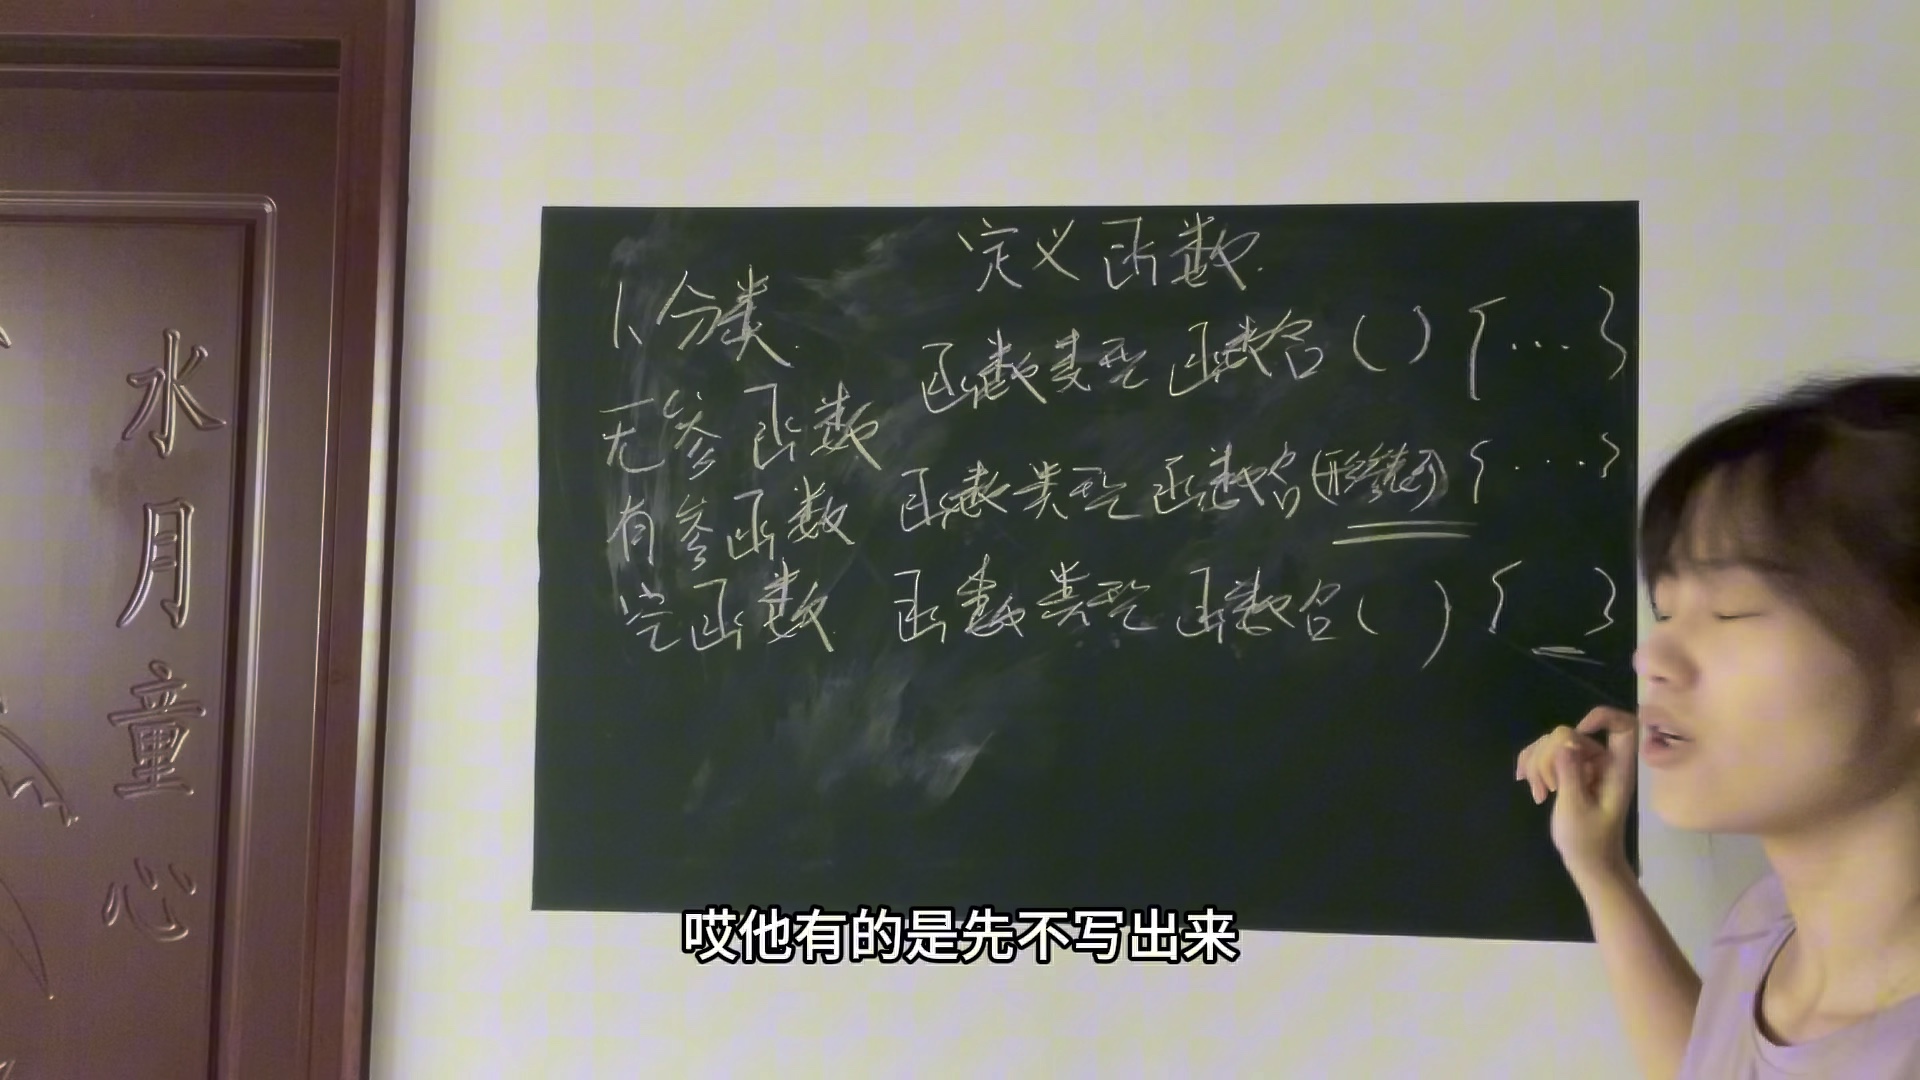 水月童心
定义函数.
1、分类.
无参函数 函数类型 函数名() {...}
有参函数 函数类型 函数名(形参表列) {...}
空函数 函数类型 函数名() { }
哎他有的是先不写出来